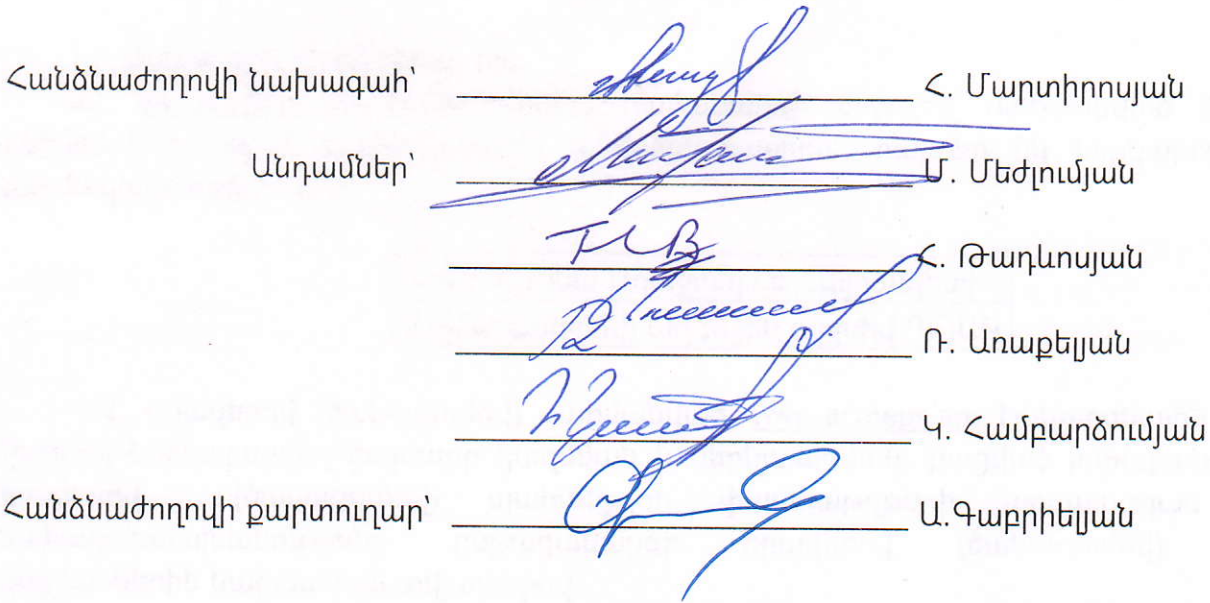 Հանձնաժողովի նախագահ՝ Հ. Մարտիրոսյան
Անդամներ՝ Մ. Մեժլումյան
Հ. Թադևոսյան
Ռ. Առաքելյան
Կ. Համբարձումյան
Հանձնաժողովի քարտուղար՝ Ա.Գաբրիելյան